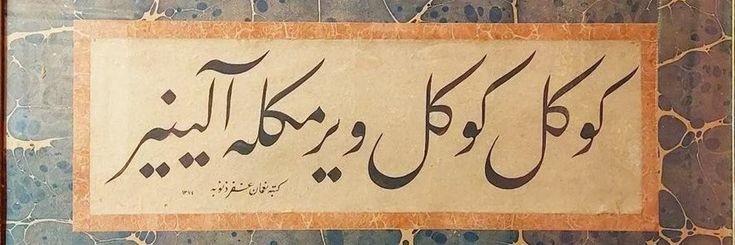 كوكل كوكل ويرمكله آلينير
كتبه نعمان غفر ذنوبه ١٣١٧